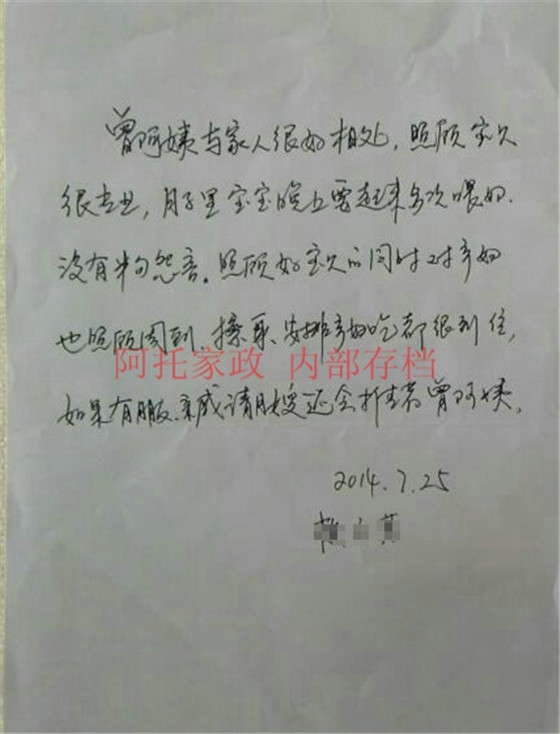 曾阿姨与家人很好相处，照顾宝宝
很专业，月子里宝宝晚上要起来多次喂奶.
没有半句怨言。照顾好宝宝的同时对产妇
也照顾周到，擦身、安排产妇吃都很到位，
阿托家政 内部存档
如果有朋友.亲戚请月嫂还会推荐曾阿姨，
2014.7.25